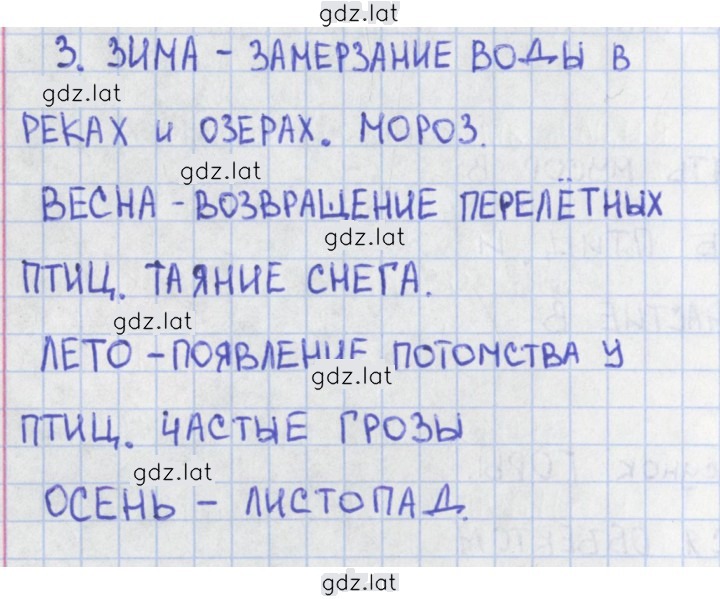 gdz.lat
3. ЗИМА - ЗАМЕРЗАНИЕ ВОДЫ В
gdz.lat
РЕКАХ И ОЗЕРАХ. МОРОЗ.
gdz.lat
ВЕСНА - ВОЗВРАЩЕНИЕ ПЕРЕЛЁТНЫХ
gdz.lat
ПТИЦ. ТАЯНИЕ СНЕГА.
gdz.lat
ЛЕТО - ПОЯВЛЕНИЕ ПОТОМСТВА У
gdz.lat
ПТИЦ. ЧАСТЫЕ ГРОЗЫ
gdz.lat
ОСЕНЬ - ЛИСТОПАД.
gdz.lat